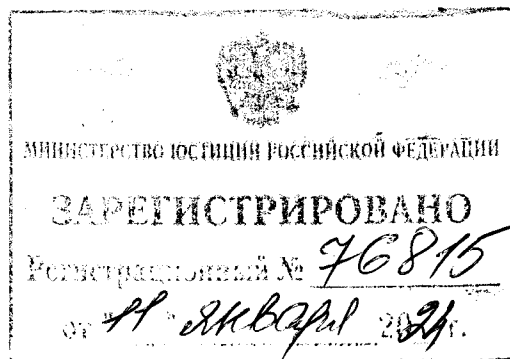 МИНИСТЕРСТВО ЮСТИЦИИ РОССИЙСКОЙ ФЕДЕРАЦИИ
ЗАРЕГИСТРИРОВАНО
Регистрационный № 76815
от "11" января 2024г.